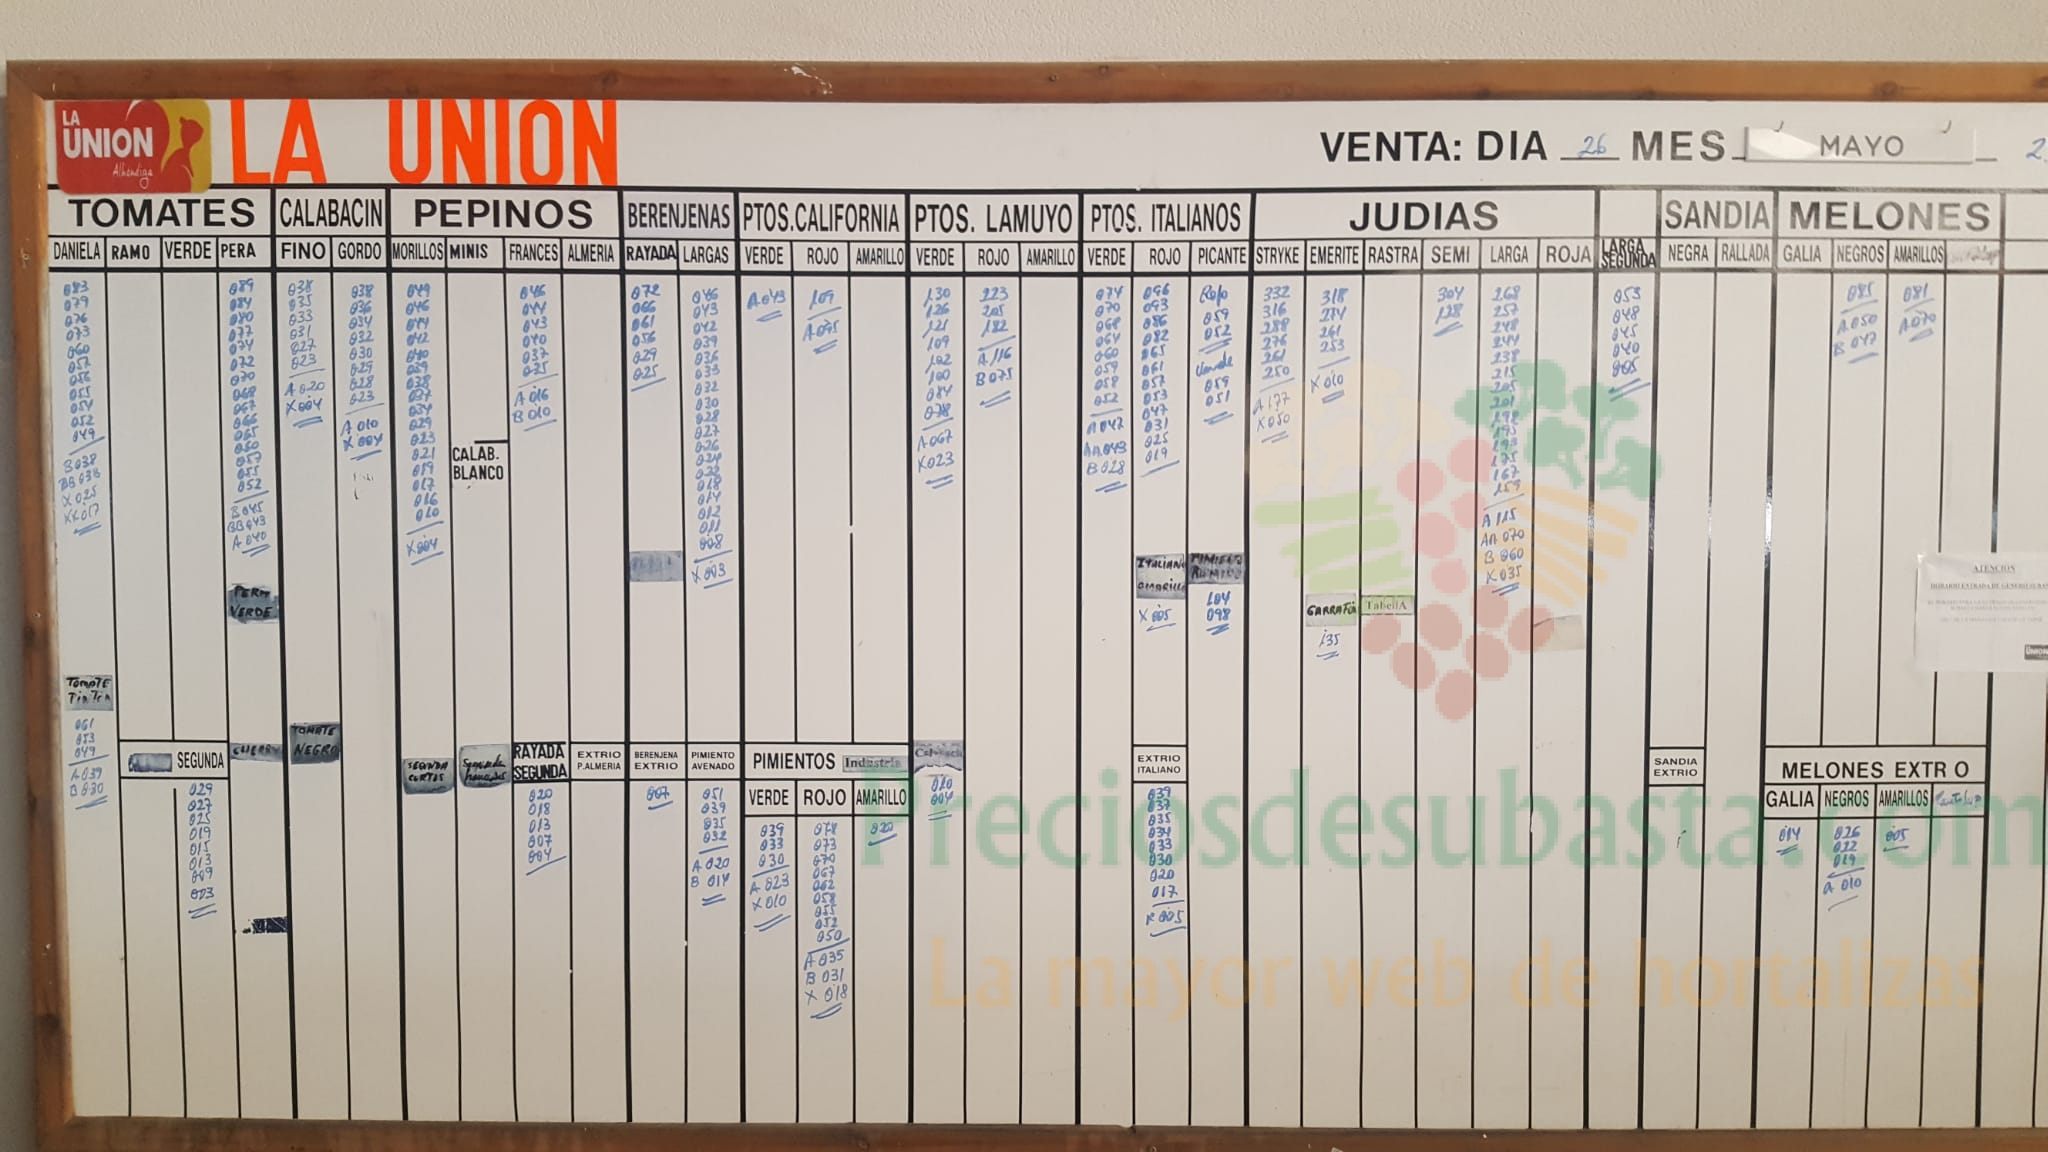 LA
UNION
Alhóndiga
LA UNION
VENTA: DIA 26 MES MAYO
TOMATES
DANIELA RAMO VERDE PERA
CALABACIN
FINO GORDO
PEPINOS
MORILLOS MINIS FRANCES ALMERIA
BERENJENAS
RAYADA LARGAS
PTOS.CALIFORNIA
VERDE ROJO AMARILLO
PTOS. LAMUYO
VERDE ROJO AMARILLO
PTOS. ITALIANOS
VERDE ROJO PICANTE
JUDIAS
STRYKE EMERITE RASTRA SEMI LARGA ROJA
LARGA
SEGUNDA
SANDIA
NEGRA RALLADA
MELONES
GALIA NEGROS AMARILLOS
083
079
076
073
060
057
056
055
054
052
049
B 038
BB 033
X 025
XX 017
089
084
080
077
074
072
070
068
067
066
065
060
057
055
052
B 045
BB 043
A 040
038
035
033
031
027
023
A 020
X 004
038
036
034
032
030
029
028
023
A 010
X 004
049
046
044
042
040
039
038
037
034
029
023
021
019
017
016
010
X 004
CALAB.
BLANCO
046
044
043
040
037
025
A 016
B 010
072
066
061
056
029
025
046
043
042
039
036
033
032
030
028
027
026
024
022
018
014
012
011
008
X 003
A 043
109
A 095
130
126
121
109
102
100
084
078
A 067
X 023
223
205
182
A 116
B 075
074
070
068
064
060
059
058
052
A 047
AA 043
B 028
096
093
086
082
065
061
057
053
047
031
025
019
Rojo
059
052
Verde
059
051
332
316
288
276
261
250
A 177
X 050
318
274
261
253
X 010
304
128
268
257
248
244
238
215
205
201
198
195
193
175
167
159
A 115
AA 070
B 060
X 035
053
048
045
040
005
085
A 050
B 047
081
A 070
PERA
VERDE
ITALIANO
AMARILLO
X 005
104
098
GARRAFON
135
TabellA
ATENCION
UNION
TOMATE
Tin Tin
061
053
049
A 039
B 030
SEGUNDA
029
027
025
019
015
013
009
003
CHERRY
TOMATE
NEGRO
SEGUNDA
CORTOS
Segunda
franceses
RAYADA
SEGUNDA
020
018
013
007
004
EXTRIO
P.ALMERIA
BERENJENA
EXTRIO
007
PIMIENTO
AVENADO
051
039
035
032
A 020
B 014
PIMIENTOS Industria
VERDE ROJO AMARILLO
039
033
030
A 023
X 010
078
073
070
067
062
058
055
052
050
A 035
B 031
X 018
020
020
004
EXTRIO
ITALIANO
039
037
035
034
033
030
020
017
X 005
SANDIA
EXTRIO
MELONES EXTR O
GALIA NEGROS AMARILLOS
014
026
022
019
A 010
005
Preciosdesubasta.com
La mayor web de hortalizas